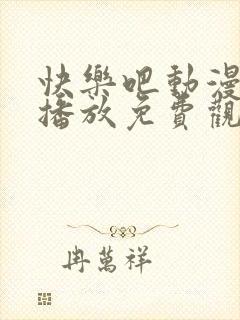 快樂吧動漫
播放免費觀
冉萬祥